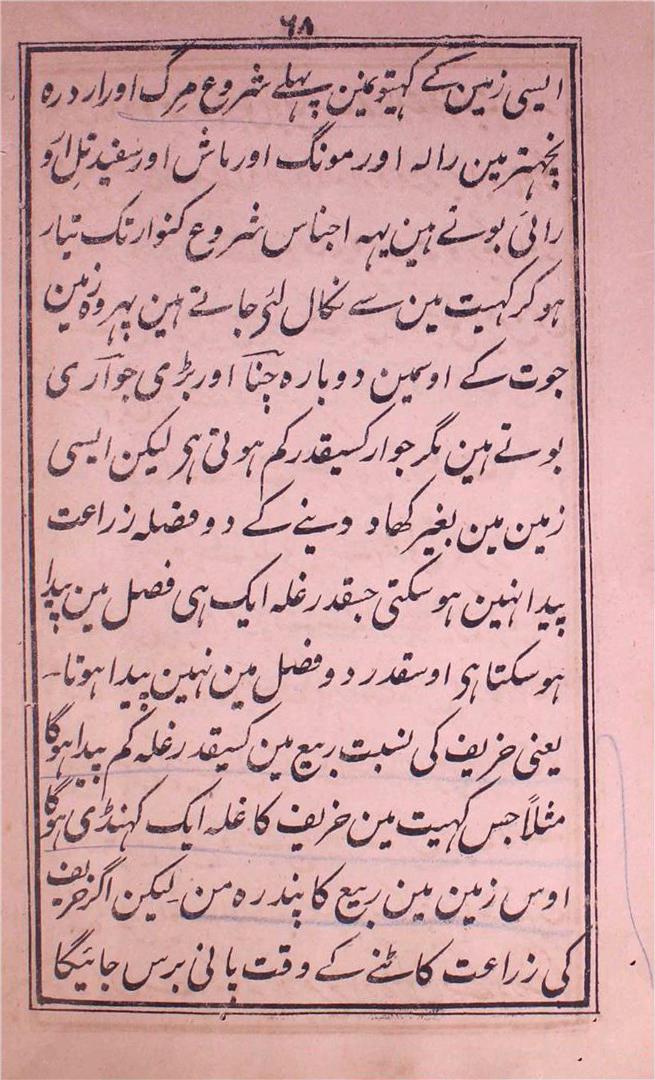 ۶۸
ایسی زمین کے کہیتونمین پہلے شروع مرگ اور اردره
پچہتر مین رالہ اور مونگ اور ماش اور سفید تل اَو
رائی بوتے ہین یہہ اجناس شروع کنوار تک تیار
ہوکر کہیت مین سے نکال لئی جاتے ہین پہر وہ زمین
جوت کے اوسمین دوبارہ چنا اور بڑی جوآری
بوتے ہین مگر جوار کسیقدر کم ہوتی ہی لیکن ایسی
زمین مین بغیر کھاد دینے کے دو فصلہ زراعت
پیدا نہین ہوسکتی جسقدر غلہ ایک ہی فصل مین پیدا
ہوسکتا ہی اوسقدر دو فصل مین نہین پیدا ہوتا۔
یعنی خریف کی نسبت ربیع مین کسیقدر غلہ کم پیدا ہوگا
مثلاً جس کہیت مین خریف کا غلہ ایک کہنڈی ہوگا
اوس زمین مین ربیع کا پندرہ من۔ لیکن اگر خریف
کی زراعت کاٹنے کے وقت پانی برس جائیگا